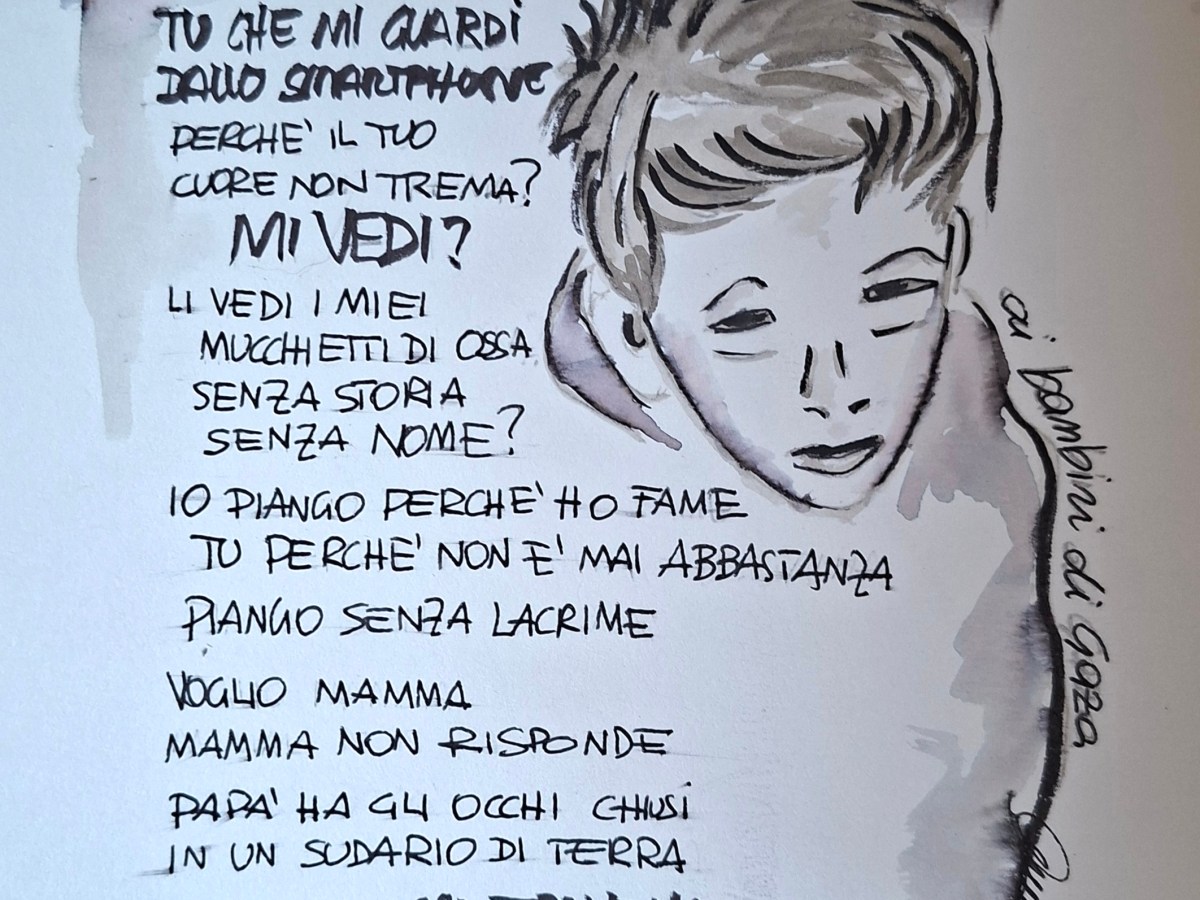 TU CHE MI GUARDI
DALLO SMARTPHONE
PERCHE' IL TUO
CUORE NON TREMA?
MI VEDI?
LI VEDI I MIEI
MUCCHIETTI DI OSSA
SENZA STORIA
SENZA NOME?
IO PIANGO PERCHE' HO FAME
TU PERCHE' NON E' MAI ABBASTANZA
PIANGO SENZA LACRIME
VOGLIO MAMMA
MAMMA NON RISPONDE
PAPA' HA GLI OCCHI CHIUSI
IN UN SUDARIO DI TERRA
ai bambini di Gaza